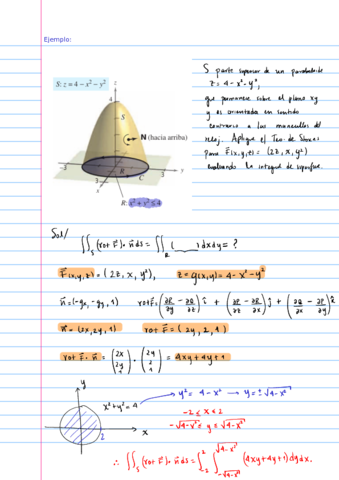 Ejemplo:
S: z = 4 − x² − y²
z
4
S
N (hacia arriba)
−3
3
3
R
C
x
y
R: x² + y² ≤ 4
S parte superior de un paraboloide
z = 4 - x² - y²,
que permanece sobre el plano xy
y es orientada en sentido
contrario a las manecillas del
reloj. Aplique el Teo de Stokes
para F⃗(x,y,z) = (2z, x, y²)
evaluando la integral de superficie.
Sol/
∬_S (rot F⃗) · n⃗ ds = ∬_R (____) dxdy = ?
F⃗(x,y,z) = (2z, x, y²), z = g(x,y) = 4 - x² - y²
n⃗ = (-gx, -gy, 1) rot F⃗ = (∂R/∂y - ∂Q/∂z) î + (∂P/∂z - ∂R/∂x) ĵ + (∂Q/∂x - ∂P/∂y) k̂
n⃗ = (2x, 2y, 1) rot F⃗ = (2y, 2, 1)
rot F⃗ · n⃗ = (2x 2y 1) · (2y 2 1) = 4xy + 4y + 1
y
x² + y² = 4
2
x
y² = 4 - x² → y = ± √4-x²
-2 ≤ x ≤ 2
-√4-x² ≤ y ≤ √4-x²
∴ ∬_S (rot F⃗) · n⃗ ds = ∫_{-2}^{2} ∫_{-√4-x²}^{√4-x²} (4xy + 4y + 1) dy dx.